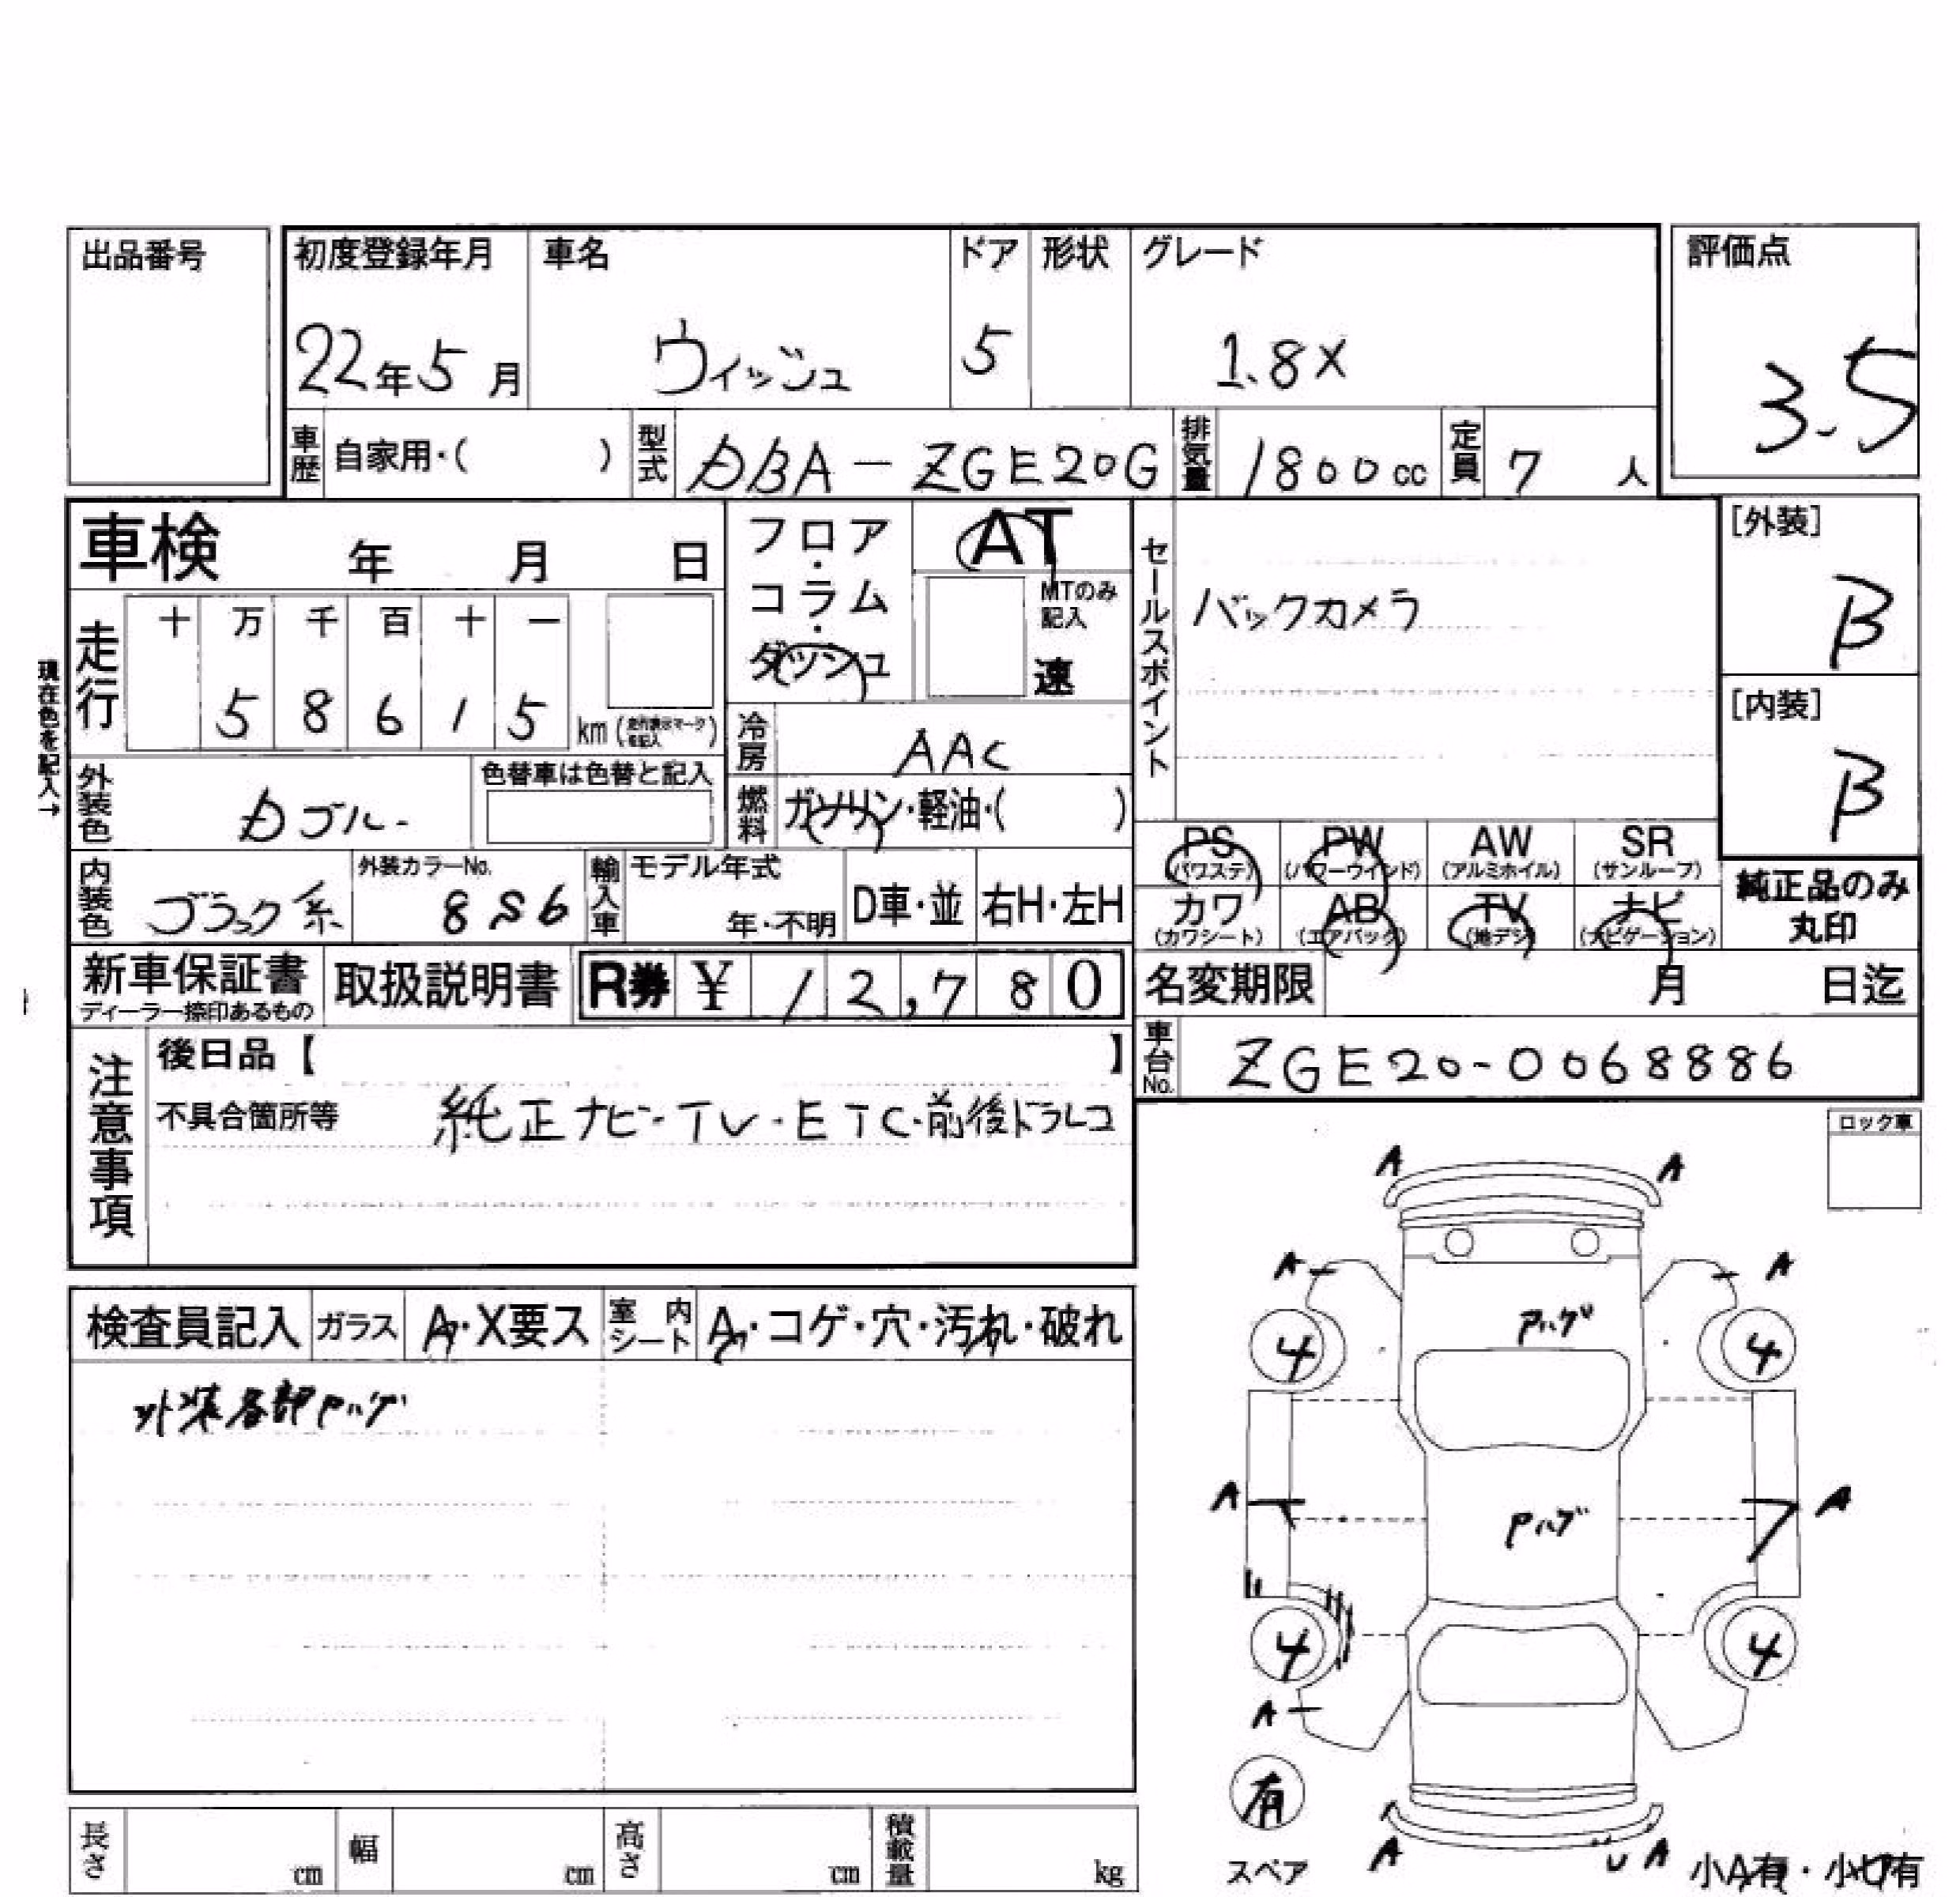 出品番号
初度登録年月 車名 ドア 形状 グレード 評価点
22年5月 ウィッシュ 5 1.8X 3.5
車歴 自家用・( ) 型式 DBA-ZGE20G 排気量 1800cc 定員 7人
車検 年 月 日
フロア・コラム・ダッシュ
AT
MTのみ記入
速
セールスポイント
バックカメラ
[外装]
B
[内装]
B
現在色を記入→
走行
十 万 千 百 十 一
5 8 6 1 5 km
冷房 AAC
外装色
色替車は色替と記入
燃料 ガソリン・軽油・( )
内装色 ブラック系
外装カラーNo.
8S6
輸入車 モデル年式
年・不明
D車・並 右H・左H
PS (パワステ) PW (パワーウインド) AW (アルミホイル) SR (サンルーフ)
カワ (カワシート) AB (エアバック) TV (地デジ) ナビ (ナビゲーション)
純正品のみ
丸印
新車保証書
ディーラー捺印あるもの
取扱説明書 R券 ¥ 12,780
名変期限 月 日迄
車台No. ZGE20-0068886
注意事項
後日品【 】
不具合箇所等 純正ナビ・TV・ETC・前後ドラレコ
ロック車
検査員記入 ガラス A・X要ス 室内シート A・コゲ・穴・汚れ・破れ
外装各部Pハゲ
A A
A A
Pハゲ
4 4
A A
Pハゲ
4 4
A
有
スペア
A U A
小A有・小U有
長さ cm 幅 cm 高さ cm 積載量 kg